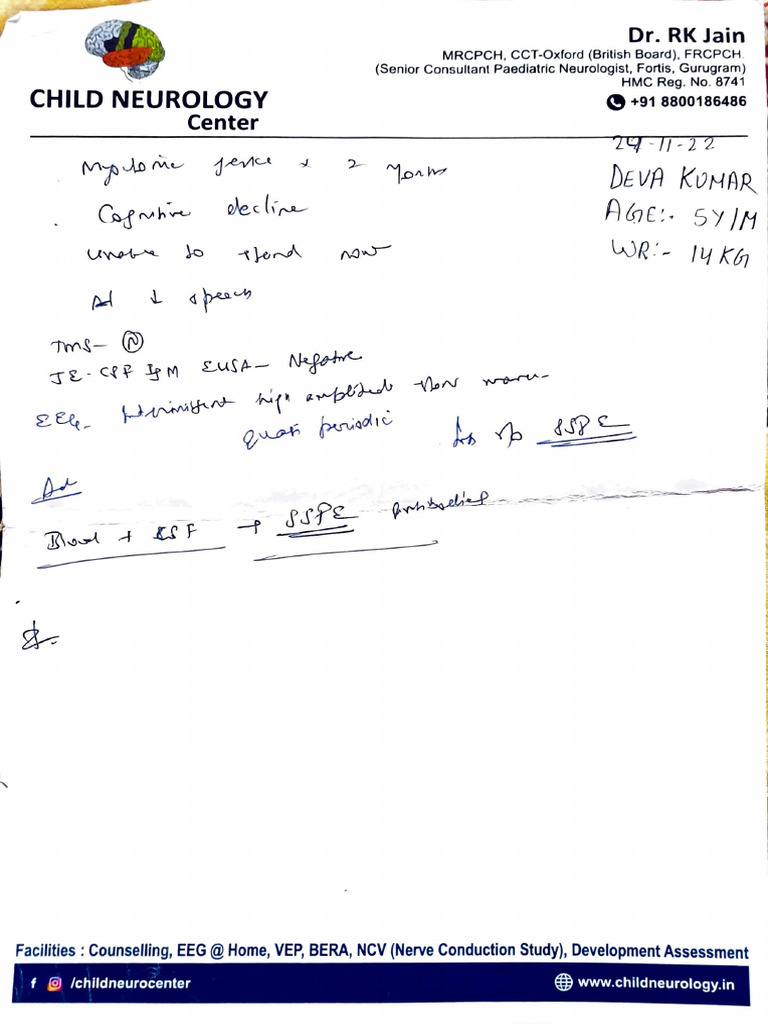 Dr. RK Jain
MRCPCH, CCT-Oxford (British Board), FRCPCH.
(Senior Consultant Paediatric Neurologist, Fortis, Gurugram)
HMC Reg. No. 8741
+91 8800186486
CHILD NEUROLOGY
Center
24-11-22
DEVA KUMAR
AGE:- 5Y/M
WR:- 14KG
Myoclonic jerks x 2 months
Cognitive decline
unable to stand now
↓ speech
TMS- N
JE-CSF IgM ELISA- Negative
EEG- Intermittent high amplitude slow waves
quasi periodic
SSPE
Ad
Blood + CSF → SSPE Antibodies
Facilities : Counselling, EEG @ Home, VEP, BERA, NCV (Nerve Conduction Study), Development Assessment
f /childneurocenter
www.childneurology.in